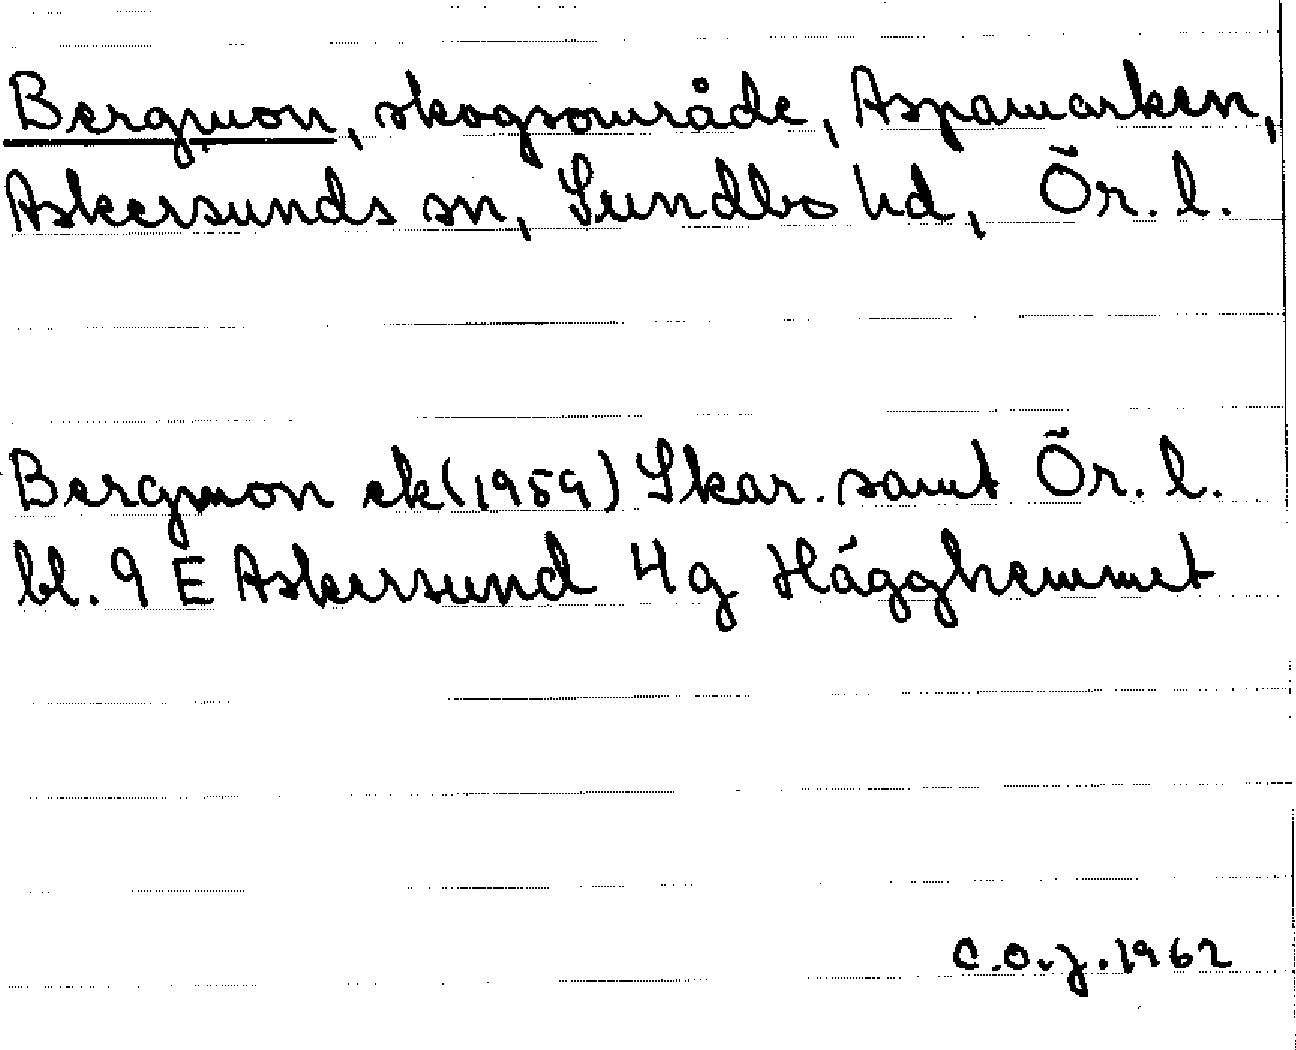 Bergmon, skogsområde, Aspamarken,
Askersunds sn, Sundbo hd, Ör. l.
Bergmon ek (1959) Skar. samt Ör. l.
bl. 9 E Askersund 4g Hägghemmet
C.O.J. 1962